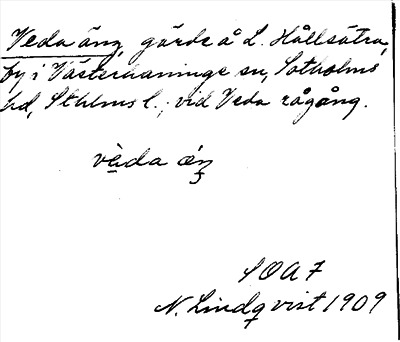 Veda äng, gärde å L. Hållsätra,
by i Västerhaninge sn, Sotholms
hd, Sthlms l.; vid Veda rågång.
vèda äŋ
SOA 7
N. Lindqvist 1909